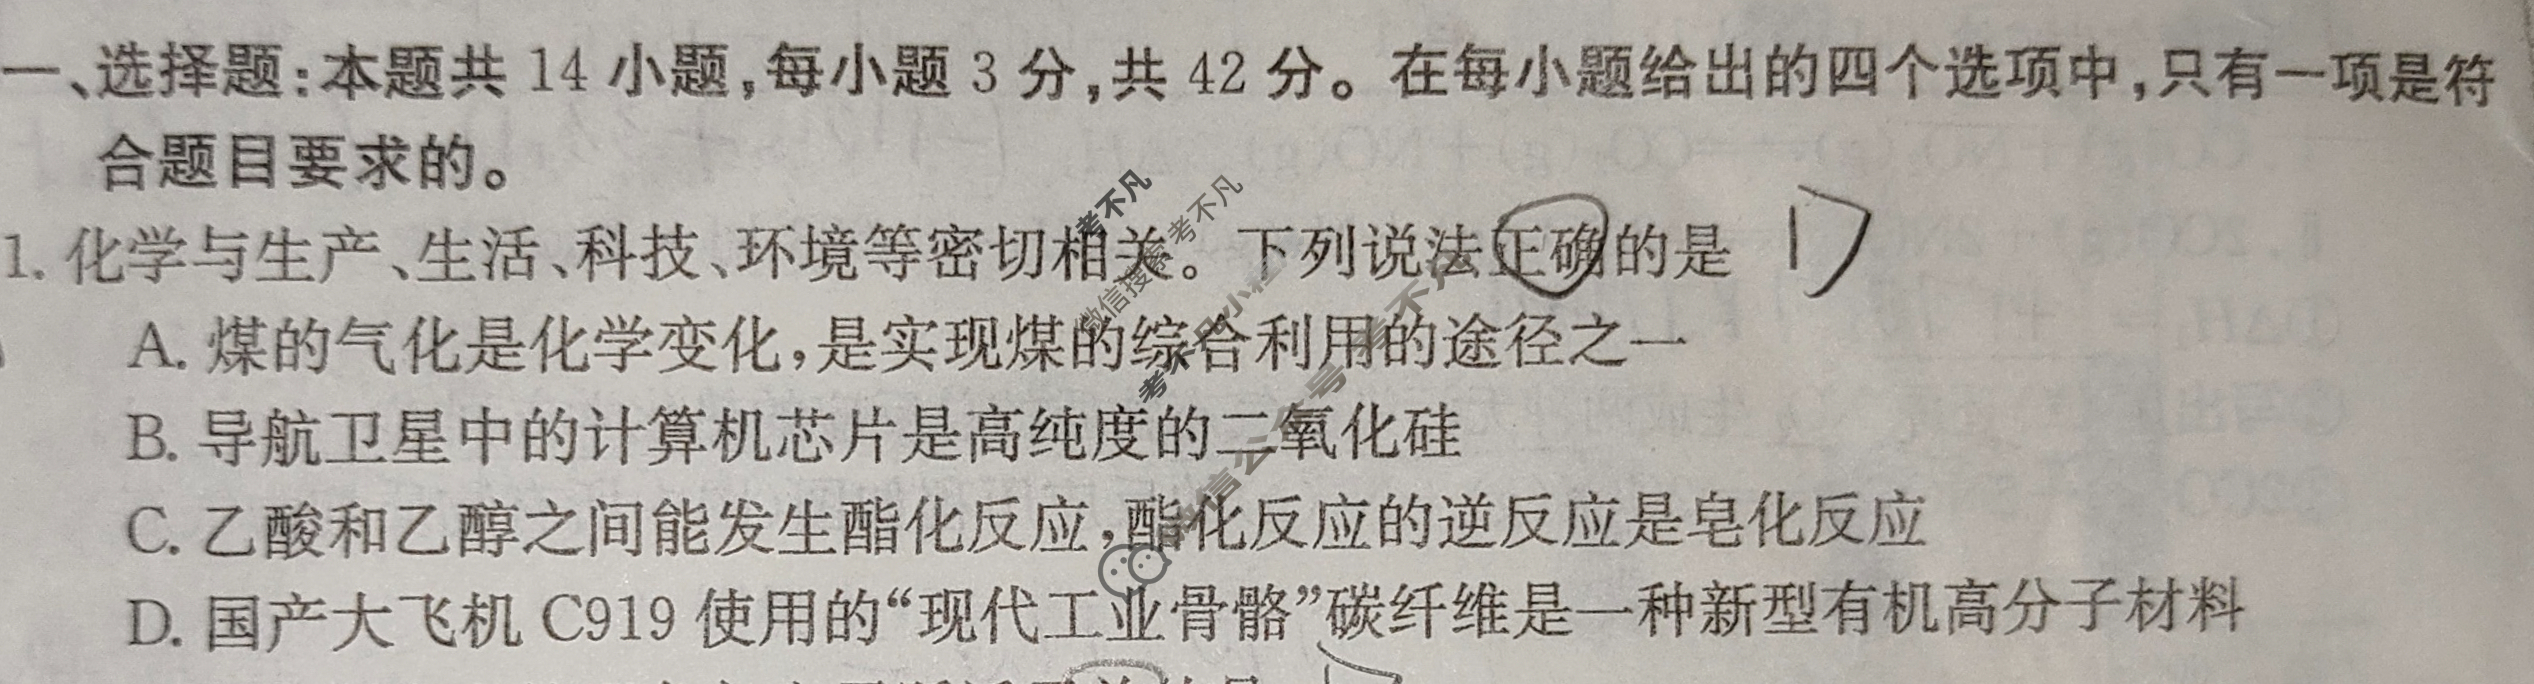 一、选择题:本题共 14 小题,每小题 3 分,共 42 分。在每小题给出的四个选项中,只有一项是符
合题目要求的。
1. 化学与生产、生活、科技、环境等密切相关。下列说法正确的是 D
A. 煤的气化是化学变化,是实现煤的综合利用的途径之一
B. 导航卫星中的计算机芯片是高纯度的二氧化硅
C. 乙酸和乙醇之间能发生酯化反应,酯化反应的逆反应是皂化反应
D. 国产大飞机 C919 使用的“现代工业骨骼”碳纤维是一种新型有机高分子材料
考不凡
微信搜索 考不凡